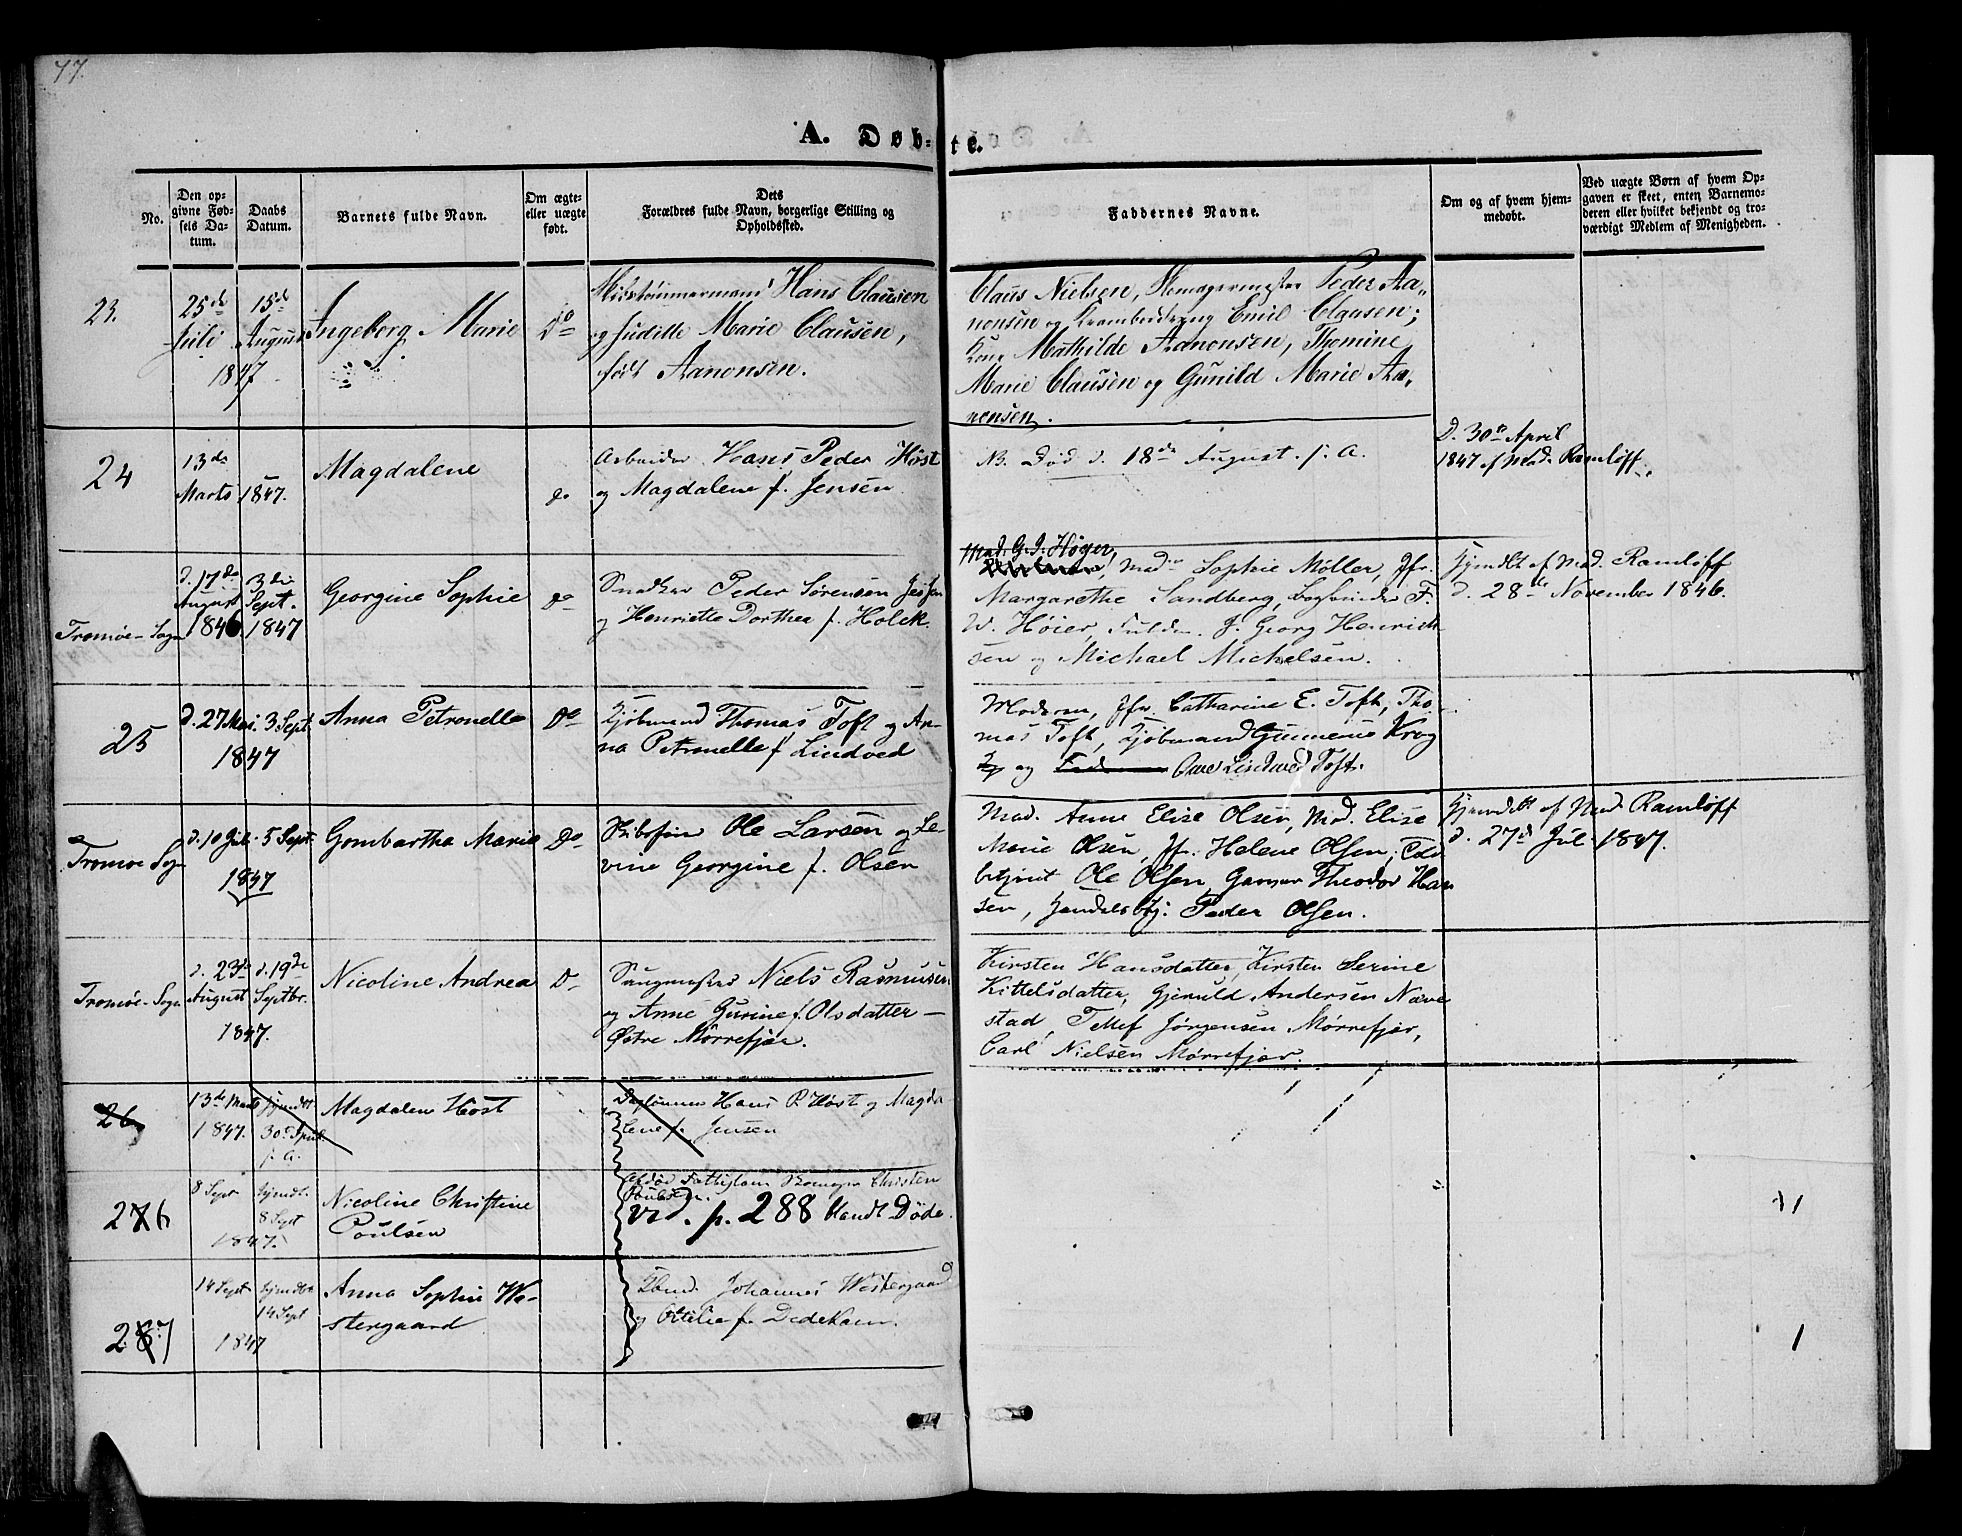 77.
A. Døbte.
No.
Den opgivne Fødsels Datum.
Daabs Datum.
Barnets fulde Navn.
Om ægte eller uægte født.
Dets Forældres fulde Navn, borgerlige Stilling og Opholdssted.
Faddernes Navne.
Om og af hvem hjemmedøbt.
Ved uægte Børn af hvem Opgaven er skeet, enten Barnemoderen eller hvilket bekjendt og troværdigt Medlem af Menigheden.
23.
25de Juli
15de August
1847
Ingeborg Marie
Do
Hans Clausen
og Judithe Marie Clausen,
født Aanonsen.
Claus Nielsen, Peder Aa-
nonsen og Emil Clausen;
Mathilde Aanonsen, Thomine
Marie Clausen og Gunild Marie Aa-
nonsen.
24
13de Marts
1847.
Magdalene
do
Arbeider Hans Peder Høst
og Magdalene f. Jensen
NB. Død d. 18de August s. A.
D. 30te April
1847 af Mad. Ramløff.
Tromøe-Sogn
d. 17de August 1846
3die Sept. 1847
Georgine Sophie
do
Snedker Peder Sørensen
og Henriette Dorthea f. Holck.
Mad. G. J. Høyer,
Mad. Sophie Møller, Jfr.
Margarethe Sandberg, Bogbinder F.
W. Høier, J. Georg Henrich-
sen og Michael Michelsen.
Hjemdbt af Mad. Ramløff
d. 28de November 1846.
25
d. 27 Mai
3 Sept.
1847
Anna Petronelle
Do
Kjøbmand Thomas Toft og An-
na Petronelle f. Lindved
Moderen, Jfr. Catharine E. Toft, Tho-
mas Toft, Kjøbmand Gunnenus Krog
og Ove Lindved Toft.
Tromøe Sogn
d. 10 Juli
5 Sept.
1847
Gombartha Marie
Do
Ole Larsen og Le-
vine Georgine f. Olsen
Mad. Anne Elise Olsen, Mad. Elise
Marie Olsen, Jfr. Helene Olsen,
Ole Olsen, Theodor Han
sen, Peder Olsen.
Hjemdbt af Mad. Ramløff
d. 27de Juli 1847.
Tromøe-Sogn
d. 23de August
d. 19de Septbr.
1847.
Nicoline Andrea
Do
Niels Rasmusen
og Anne Gurine f. Olsdatter —
Østre Mørrefjær.
Kirsten Hansdatter, Kirsten Serine
Kittelsdatter, Gjeruld Andersen Næve
stad, Tellef Jørgensen Mørrefjær,
Carl Nielsen Mørrefjær.
26
13de Marts
1847.
hjemdbt
30 April
s. A.
Magdalene Høst
Hans P. Høst og Magda-
lene f. Jensen
276
8 Sept
hjemdt.
8 Sept
1847.
Nicoline Christine
Poulsen
Christen
Poulsen.
Vid. p. 288 blandt Døde.
1
287
14 Sept
hjemdbt
14 Sept
1847
Anna Sophie We-
stergaard
Kbmd. Johannes Westergaard
og Ottilie f. Dedekam.
1